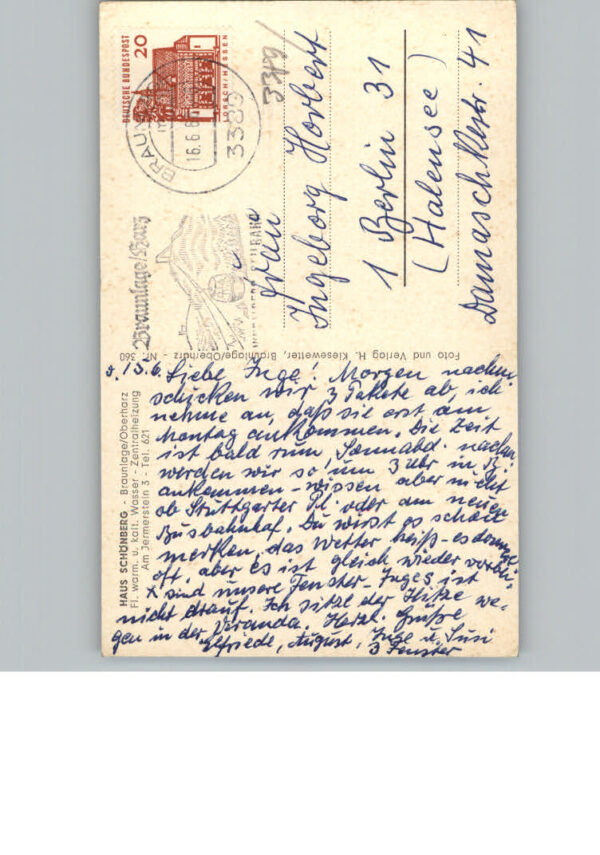 HAUS SCHÖNBERG - Braunlage/Oberharz
Fl. warm. u. kalt. Wasser - Zentralheizung
Am Jermerstein 3 - Tel. 621
d. 15.6.
Liebe Inge! Morgen nachm.
schicken wir 3 Pakete ab, ich
nehme an, daß sie erst am
Montag ankommen. Die Zeit
ist bald rum, Sonnabd. nachm.
werden wir so um 3 Uhr in B.
ankommen - wissen aber nicht
ob Stuttgarter Pl. oder am neuen
Busbahnhof. Du wirst es schon
merken, das Wetter heiß - es donnert
oft, aber es ist gleich wieder vorbei
x sind unsere Fenster - Inges ist
nicht drauf. Ich sitze der Hitze we-
gen in der Veranda. Herzl. Grüße
Elfriede, August, Inge u. Susi
3 Fenster
Foto und Verlag H. Kiesewetter, Braunlage/Oberharz - Nr. 360
DEUTSCHE BUNDESPOST
20
LORSCH/HESSEN
BRAUNLAGE
16.6.6
3389
Braunlage/Harz
WURMBERG-SEILBAHN
3389/
Frau
Ingeborg Horbert
1 Berlin 31
(Halensee)
Damaschkestr. 41